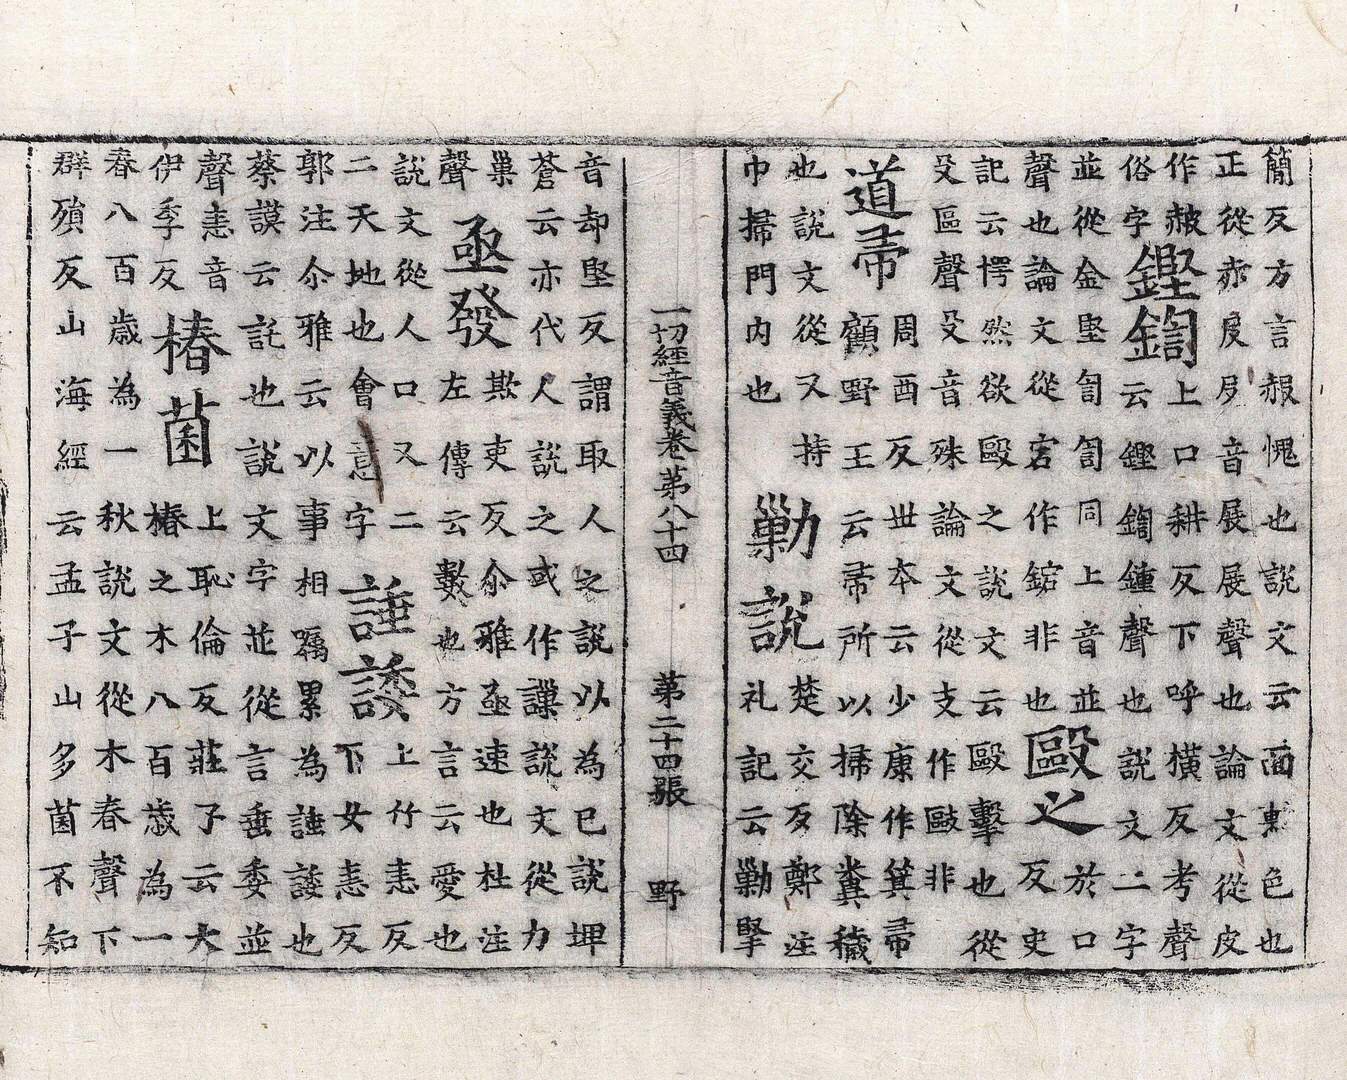 簡反方言赧愧也說文云面色也
正從赤𠬝𠬝音展展聲也論文從皮
作赧
俗字
鏗鍧
上口耕反下呼橫反考聲
云鏗鍧鍾聲也說文二字
並從金堅訇訇同上音並
聲也論文從宕作非也
毆之
於口
反史
記云愕然欲毆之說文云毆擊也從
殳區聲殳音殊論文從支作敺非
道帚
周酉反世本云少康作箕帚
顧野王云帚所以掃除糞穢
也說文從又持
巾掃門内也
勦說
楚交反鄭注
礼記云勦擥
一切經音義卷第八十四 第二十四張 野
音却堅反謂取人之說以為已說埤
蒼云亦代人說之或作謙說文從力
巢
聲
亟發
欺吏反尒雅亟速也杜注
左傳云數也方言云愛也
說文從人口又二
二天地也會意字
諈諉
上竹恚反
下女恚反
郭注尒雅云以事相囑累為諈諉也
蔡謨云託也說文字並從言垂委並
聲恚音
伊季反
椿菌
上恥倫反莊子云大
椿之木八百歲為一
春八百歲為一秋說文從木春聲下
群殞反山海經云孟子山多菌不知